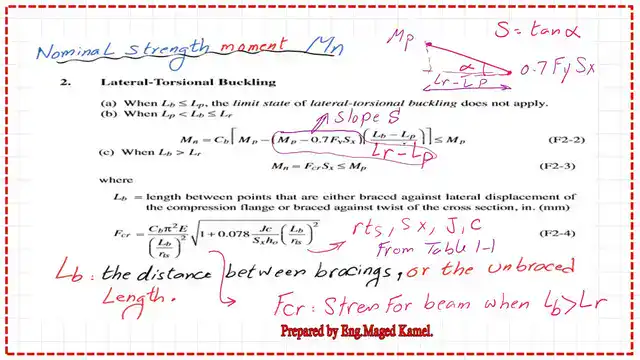 Nominal strength moment Mn
Mp
S = tanα
α
0.7 Fy Sx
Lr-Lp
2. Lateral-Torsional Buckling
(a) When Lb ≤ Lp, the limit state of lateral-torsional buckling does not apply.
(b) When Lp < Lb ≤ Lr
slope S
Mn = Cb[Mp − (Mp − 0.7FySx)(Lb − Lp / Lr − Lp)] ≤ Mp (F2-2)
(c) When Lb > Lr
Mn = FcrSx ≤ Mp (F2-3)
where
Lb = length between points that are either braced against lateral displacement of
the compression flange or braced against twist of the cross section, in. (mm)
Fcr = Cbπ²E / (Lb/rts)² √1 + 0.078 Jc/Sxho (Lb/rts)² (F2-4)
rts, Sx, J, C
From Table 1-1
Lb: the distance between bracings, or the unbraced
Length.
Fcr: Stress For beam when Lb>Lr
Prepared by Eng.Maged Kamel.